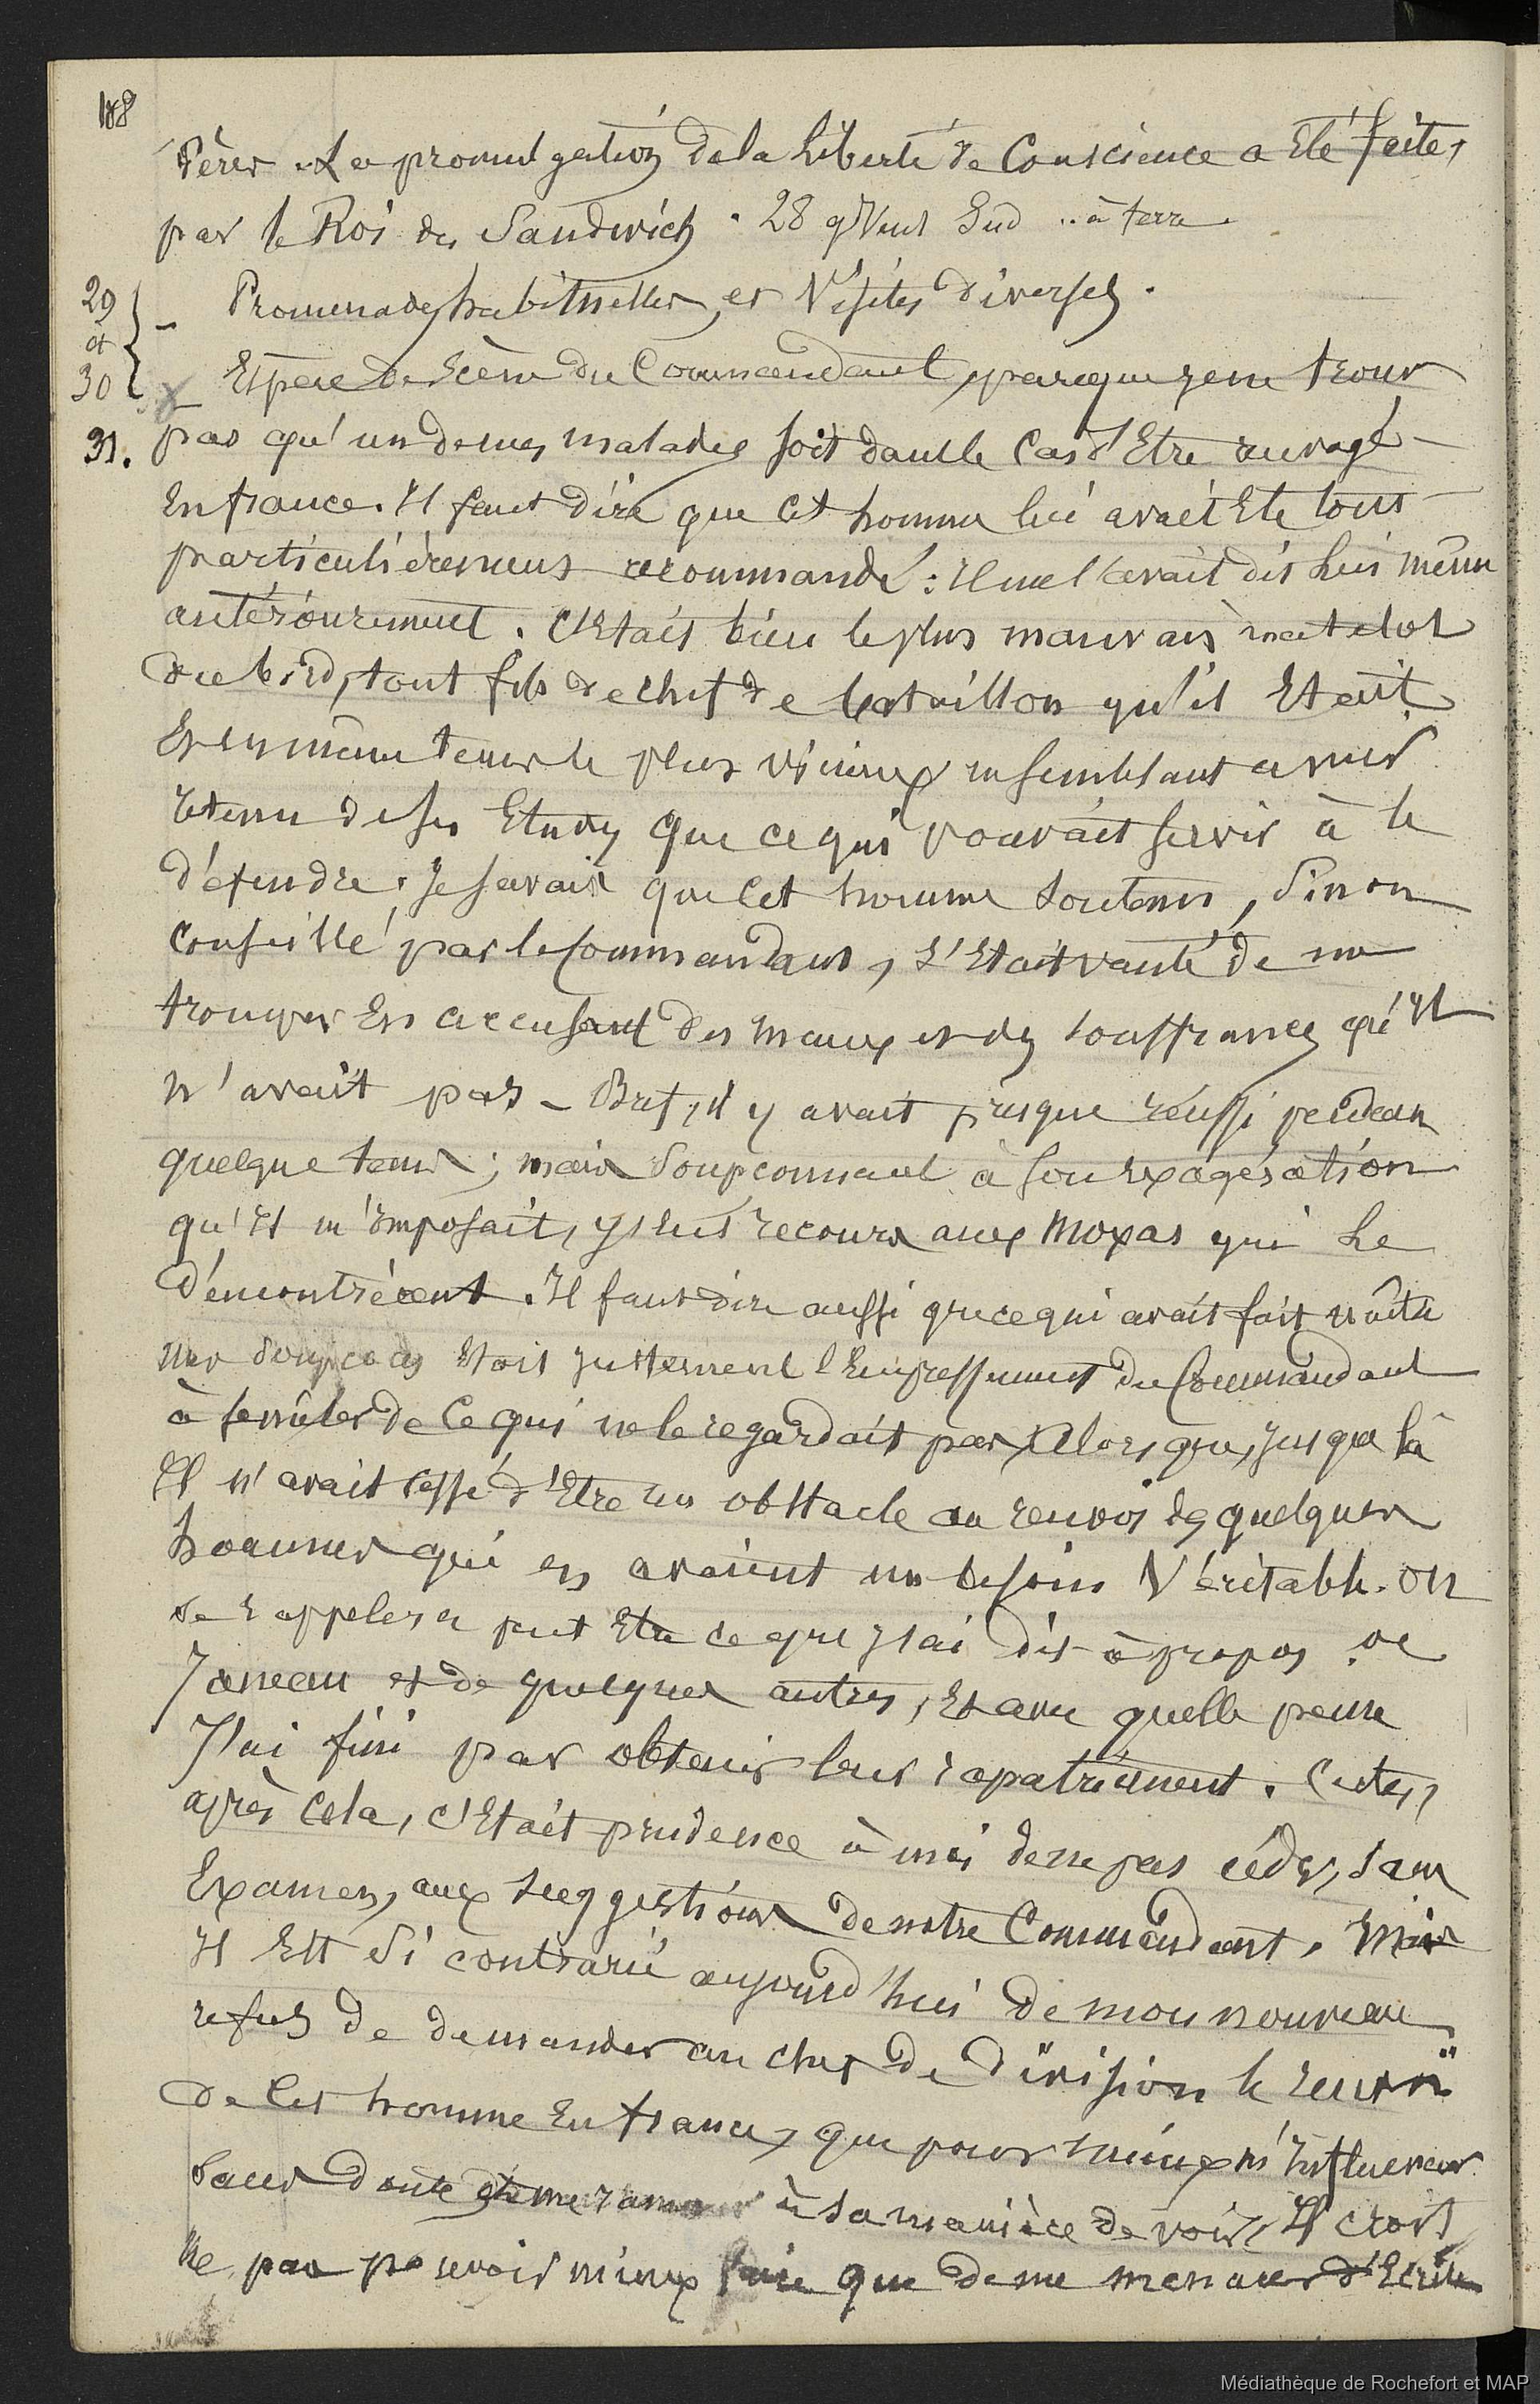 188
Pères. La promulgation de la liberté de Conscience a Eté faite,
par le Roi des Sandwich. 28 Vent Sud .. à terre.
29 et 30 } – Promenades habituelles, et Visites diverses.
31. – Espece de Scène du Commandant, parceque je ne trouve
pas qu'un de mes malades soit dans le Cas d'Etre renvoyé
En france. Il faut dire que cet homme lui avait Eté tout
particulièrement recommandé : Il me l'avait dit lui même
antérieurement. C'Etait bien le plus mauvais matelot
du bord, tout fils de chef de bataillon qu'il Etait
Et en même temps le plus vicieux ne semblant avoir
retenu de ses Etudes que ce qui pouvait servir à le
défendre. Je savais que cet homme soutenu, Sinon
conseillé par le Commandant, s'Etait vanté de me
tromper En accusant des maux et des souffrances qu'il
n'avait pas – Bref, il y avait presque réussi pendant
quelque temps ; mais soupçonnant à son Exagération
qu'il m'imposait, j'Eus recours aux Moxas qui le
démontrèrent. Il faut dire aussi que ce qui avait fait naître
mes soupçons Etait justement l'Empressement du Commandant
à se mêler de ce qui ne le regardait pas, Alors que, jusque là
Il n'avait cessé d'Etre un obstacle au renvoi de quelques
hommes qui en avaient un besoin Véritable. On
se rappelera peut Etre ce que j'ai dit à propos de
Janeau et de quelques autres, Et avec quelle peine
J'ai fini par obtenir leur rapatriement. Certes,
après cela, c'Etait prudence à moi de ne pas céder, sans
Examen, aux suggestions de notre Commandant. Mais
Il Est si contrarié aujourd'hui de mon nouveau
refus de demander au chef de division le renvoi
de cet homme En france, que pour mieux m'Influencer
sans doute Et me ramener à sa manière de voir, Il croit
ne pas pouvoir mieux faire que de me menacer d'Ecrire
Médiathèque de Rochefort et MAP